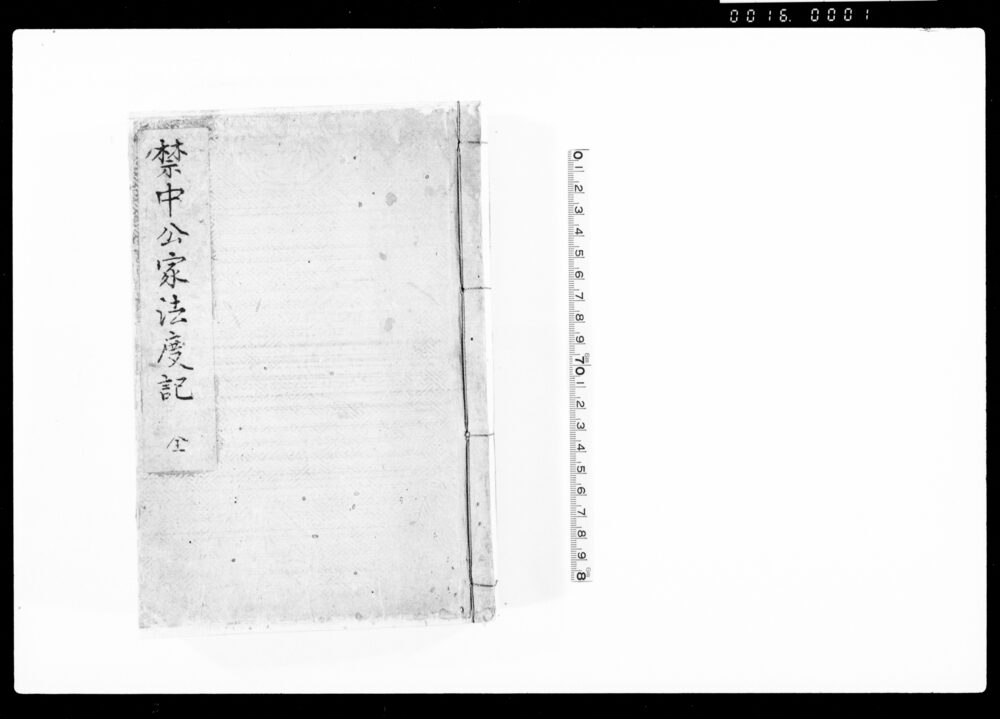 0016. 0001
禁中公家法度記
全
0 1 2 3 4 5 6 7 8 9 70 1 2 3 4 5 6 7 8 9 8